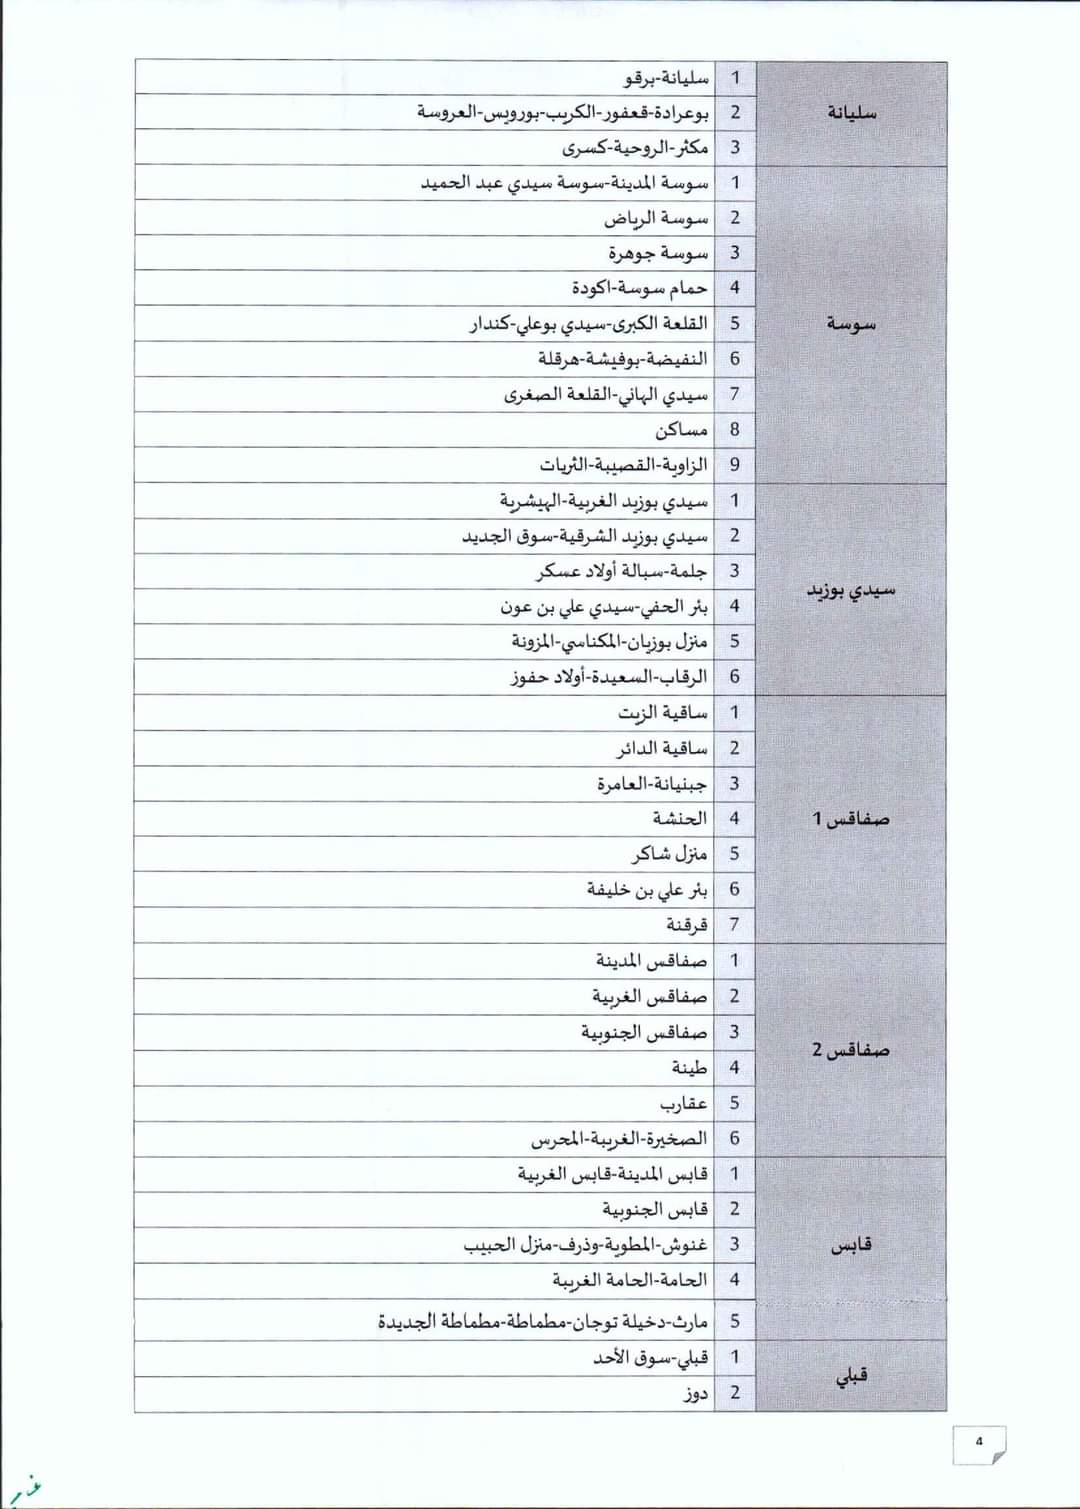 سليانة
1 سليانة-برقو
2 بوعرادة-قعفور-الكريب-بورويس-العروسة
3 مكثر-الروحية-كسرى
سوسة
1 سوسة المدينة-سوسة سيدي عبد الحميد
2 سوسة الرياض
3 سوسة جوهرة
4 حمام سوسة-اكودة
5 القلعة الكبرى-سيدي بوعلي-كندار
6 النفيضة-بوفيشة-هرقلة
7 سيدي الهاني-القلعة الصغرى
8 مساكن
9 الزاوية-القصيبة-الثريات
سيدي بوزيد
1 سيدي بوزيد الغربية-الهيشرية
2 سيدي بوزيد الشرقية-سوق الجديد
3 جلمة-سبالة أولاد عسكر
4 بئر الحفي-سيدي علي بن عون
5 منزل بوزيان-المكناسي-المزونة
6 الرقاب-السعيدة-أولاد حفوز
صفاقس 1
1 ساقية الزيت
2 ساقية الدائر
3 جبنيانة-العامرة
4 الحنشة
5 منزل شاكر
6 بئر علي بن خليفة
7 قرقنة
صفاقس 2
1 صفاقس المدينة
2 صفاقس الغربية
3 صفاقس الجنوبية
4 طينة
5 عقارب
6 الصخيرة-الغريبة-المحرس
قابس
1 قابس المدينة-قابس الغربية
2 قابس الجنوبية
3 غنوش-المطوية-وذرف-منزل الحبيب
4 الحامة-الحامة الغربية
5 مارث-دخيلة توجان-مطماطة-مطماطة الجديدة
قبلي
1 قبلي-سوق الأحد
2 دوز
4